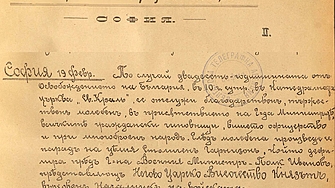 СОФИЯ.
II.
София 19 февр. По случай двадесеть-годишнината отъ
Освобождението на България, въ 10 ч. сутр. въ Катедралната
църква „Св. Краль“, се отслужи благодарственъ, тържест-
венъ молебенъ, въ присѫтствието на г.г. да Министри,
всичкитѣ граждански чиновници, висшето офицерство
и при многоброенъ народъ. Следъ молебена произведе се
парадъ на цѣлия Столиченъ Гарнизонъ, който дефи-
лира прѣдъ Г-на Военния Министъръ Полк. Ивановъ,
прѣдставляющъ Негово Царско Височество Князътъ,